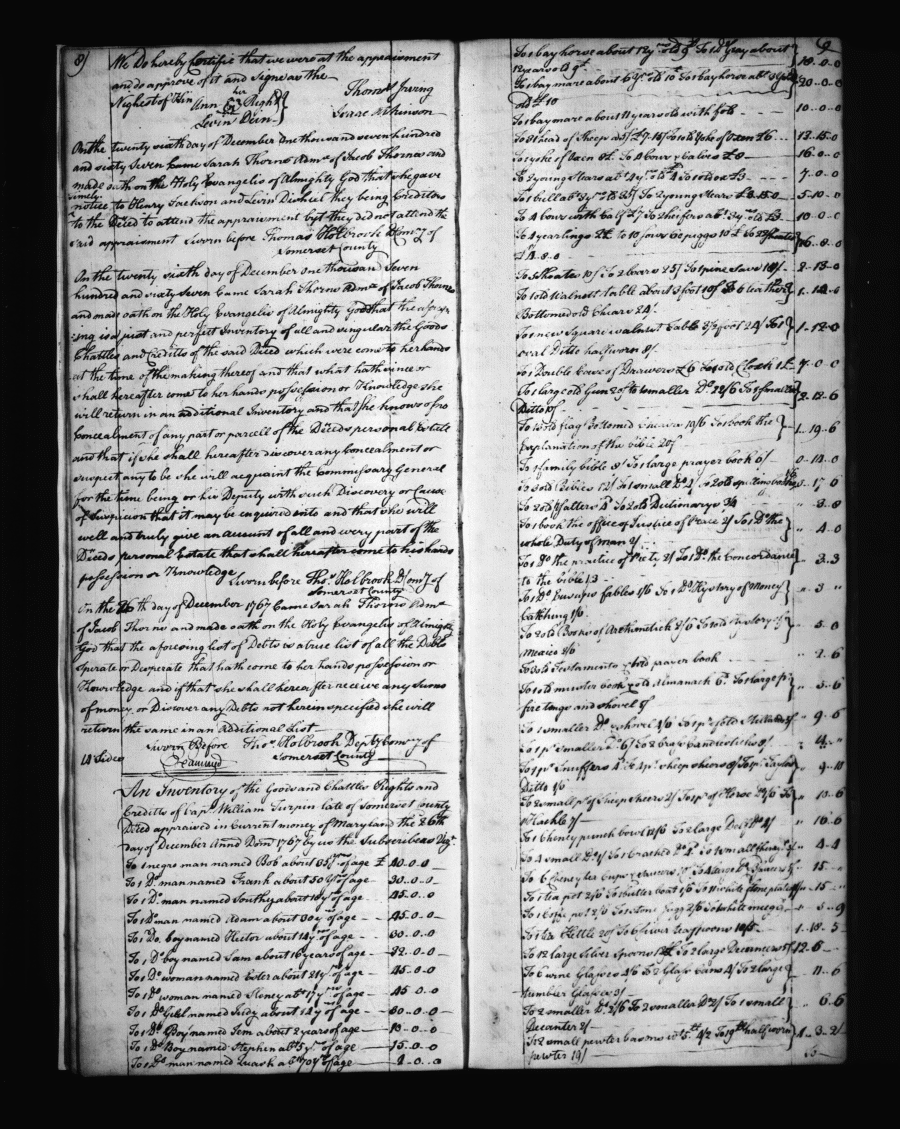 8)
We Do hereby Certifie that we were at the appraisment
and do approve of it and Sign as the
Nighest of Kin Ann her Right Thomas Irving
Levin Dun Isaac Atkinson
On the twenty sixth day of December One thousand seven hundred
and sixty Seven Came Sarah Thorns Admx of Jacob Thorns and
made oath on the Holy Evangelis of Almighty God that she gave
timely
notice to Henry Jackson and Levin they being Creditors
to the Deced to attend the appraisment but they did not attend the
said appraisment Sworn before Thomas Holbrook Comry of
Somerset County
On the twenty sixth day of December One thousand Seven
hundred and sixty Seven Came Sarah Thorns Admx of Jacob Thorns
and made oath on the Holy Evangelis of Almighty God that the afore
ing is a just and perfect Inventory of all and singular the Goods
Chattles and Creditts of the said Deced which were come to her hands
at the time of the making thereof and that what hath since or
shall hereafter come to her hands possession or Knowledge she
will return in an additional Inventory and that she knows of no
Concealment of any part or parcell of the Deceds personal Estate
and that if she shall hereafter discover any Concealment or
suspect any to be she will acquaint the Commissary General
for the time being or his Deputy with such Discovery or Cause
of Suspicion that it may be enquired into and that she will
well and truly give an account of all and every part of the
Deceds personal Estate that shall hereafter come to his hands
possession or Knowledge Sworn before Thos. Holbrook D Comry of
Somerset County
On the 26th day of December 1767 Came Sarah Thorns Admx
of Jacob Thorns and made oath on the Holy Evangelis of Almighty
God that the aforesing list of Debts is a true list of all the Debts
Sperate or Desperate that hath come to her hands possession or
Knowledge and if that she shall hereafter receive any Sums
of money or Discover any Debts not herein specified she will
return the same in an Additional List
Sworn Before Thos. Holbrook Depty Comry of
10 Sides Examined Somerset County
An Inventory of the Goods and Chattles Rights and
Creditts of Capt. William Turpin late of Somerset County
Deced appraised in Current money of Maryland the 26th
day of December Anno Dom 1767 by us the Subscribers Vizt.
To 1 negro man named Bob about 35 yrs of age £ 40..0..0
To 1 Do. man named Frank about 50 yrs of age 30..0..0
To 1 Do. man named Southy about yrs of age 45..0..0
To 1 Do. man named Adam about 30 yrs of age 45..0..0
To 1 Do. boy named Hector about 14 yrs of age 30..0..0
To 1 Do. boy named Sam about years of age 32..0..0
To 1 Do. woman named Ester about 21 yrs of age 45..0..0
To 1 Do. woman named abt. 17 yrs of age 45..0..0
To 1 Do. Girl named Judy about 14 yr of age 40..0..0
To 1 Do. Boy named Jem about 2 years of age 10..0..0
To 1 Do. Boy named Stephen abt. 5 yrs of age 15..0..0
To 1 Do. man named Quash abt. 70 yrs of age 1..0..0
9
To 1 bay horse about 12 yrs old To 1 Do. Gray about
12 years old 18..0..0
To 1 bay mare about 6 yrs To 1 bay horse abt. 3 yrs
old £10 20..0..0
To 1 bay mare about 11 years old with fole 10..0..0
To head of Sheep £7..15/ To 1 old Yoke of Oxen £6 13..15..0
To 1 yoke of Oxen 8£ To 4 Cows & Calves £8 16..0..0
To 2 young Stears abt. 4 yrs £4 7..0..0
To 1 bull abt. 3 yrs To 2 young Stears 5..10..0
To 4 Cows with Calf £7 To 2 heifers abt. 2 yrs old £3 10..0..0
To 4 yearlings 2£ to 10 sows 60 piggs 10£ To 22 shoates
£4..8..0 16..8..0
To 5 Shoates 10/ To 2 boars 25/ To 1 pine 18/ 2..13..0
To 1 old Walnut table about 3 foot 10/ To 6 leather
Bottomed old Chears 24/ 1..14..0
To 1 new Square walnut Table 3½ foot 24/ To 1
Ditto half worn 8/ 1..12..0
To 1 Double Case of Drawers £6 To 1 old Cloack 1£ 7..0..0
To 1 large old Gun 20/ to 1 smaller Do. 22/6 To 1 smaller
Ditto 10/ 2..12..6
To 15 old flag Bottomed Chears 19/6 To 1 book the
Explanation of the bible 20/ 1..19..6
To 1 family bible 8/ To 1 large prayer book 6/ 0..14..0
To 3 old Bibles 12/ To 1 small Do. To 2 old spelling books 17..6
To 2 old psalters To 2 old Dictionarys 3/4 3..8
To 1 book the office of Justice of Peace 2/ To 1 Do. the
whole Duty of man 2/ 4..0
To 1 Do. the practice of Piety 2/ To 1 Do. the Concordance
to the bible 1 3 3..3
To 1 Do. Eusops fables 1/6 To 1 Do. Mystery of Money
Catching 1/6 3 "
To 2 old Books of Arethmetick 2/6 To 1 old history of
Mexico 2/6 5..0
To 3 old Testaments & 1 old prayer book 2..6
To 1 old muster book & old Almanack 6d. To 1 large pr.
fire tongs and shovel 5/ 5..6
To 1 smaller Do. & shovel 4/6 To 1 pr. of old 9..6
To 1 pr. smaller Do. To 2 brass Candlesticks 8/ 14..
To 1 pr. Snuffers & 4 pr. sheep shears 8/ To 1 pr. Taylors
Ditto 1/6 9..10
To 2 small pr. of Sheep Sheers 2/ To 1 pr. of Horse To
Hackle 7/ 13..6
To 1 Cheney punch bowl 12/6 To 2 large Delf Do. 4/ 16..6
To 4 small Do. 2/ To 1 Cracked Do. To 1 small Cheney 4..4
To 6 Cheney tea Cups & Saucers To 4 large Do. & Saucers 15..
To 1 Tea pot 2/6 To 1 butter boat 1/6 To 11 white stone plates 15..
To 1 Coffe pot 2/6 To 1 Stone Jugg 2/6 To 1 white mugg 5..9
To 1 Tea Kettle 20/ To 6 Silver Teaspoons 18/5 1..18..5
To 12 large Silver Spoons 12£ To 2 large Decanters 5/ 12..5..
To 6 wine Glasses 4/6 To 2 Glass Cans 4/ To 2 large
tumbler Glasses 3/ 11..6
To 2 smaller Do. 2/6 To 2 smaller Do. 2/ To 1 small
Decanter 2/ 6..6
To 2 small pewter basons wt. 5 lb 4/2 To 19 lb half worn
pewter 19/ 1..3..2